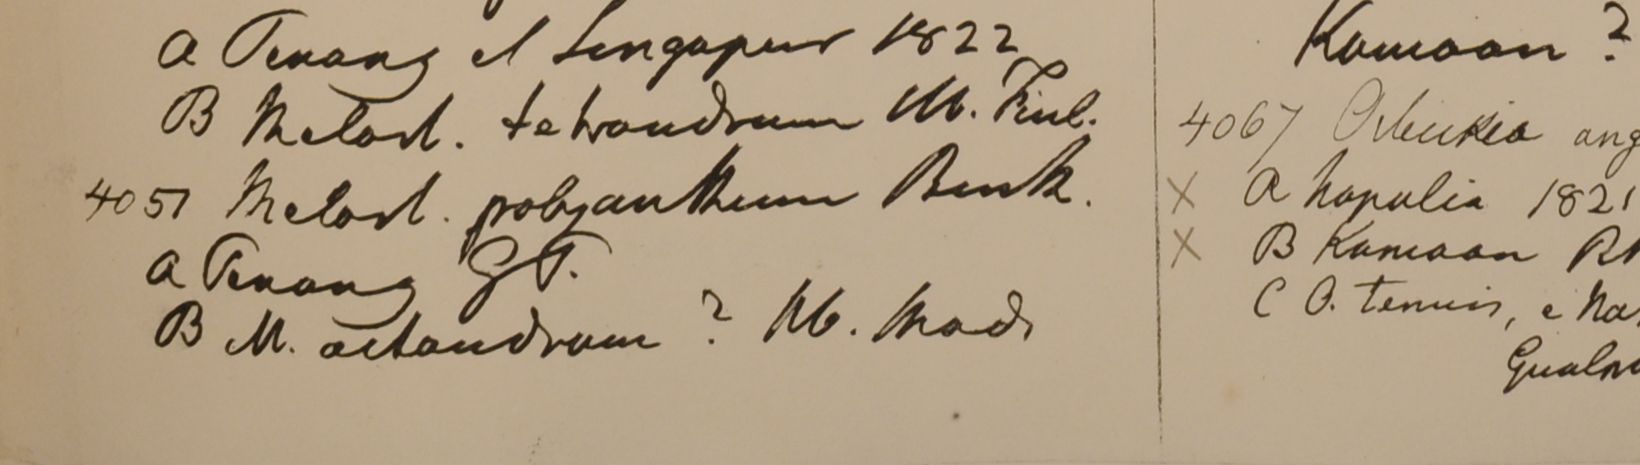 a Penang et Singapur 1822
B Melast. tetrandrum Hb. Finl.
4051 Melast. polyanthum Benth.
a Penang G.P.
B M. octandrum ? Hb. Madr
Kamaon ?
4067 Osbeckia ang
X a Napalia 1821
X B Kamaon
C O. tenuis, e Na
Gualpa